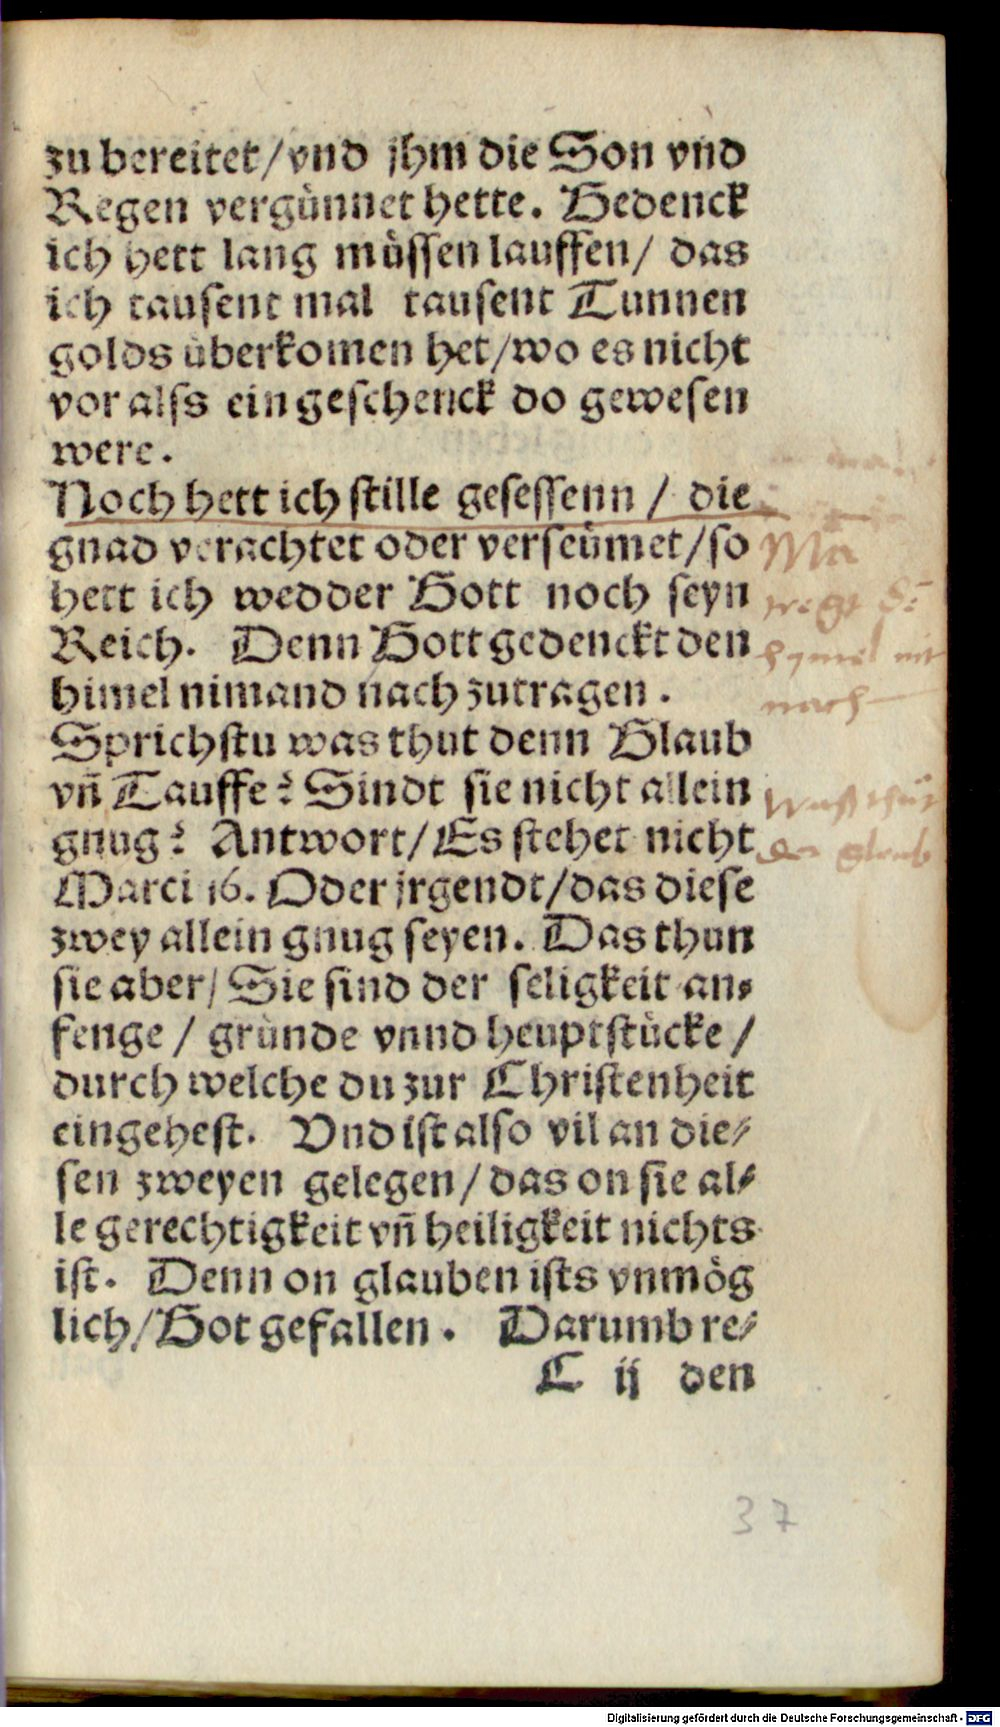 zu bereitet/vnd jhm die Son vnd
Regen vergünnet hette. Gedenck
ich hett lang müssen lauffen/ das
ich tausent mal tausent Tunnen
golds überkomen het/wo es nicht
vor alss ein geschenck do gewesen
were.
Noch hett ich stille gesessenn / die
gnad verachtet oder verseümet/so
hett ich wedder Gott noch seyn
Reich. Denn Gott gedenckt den
himel nimand nach zutragen.
Sprichstu was thut denn Glaub
vn̄ Tauffe? Sindt sie nicht allein
gnug? Antwort/Es stehet nicht
Marci 16. Oder jrgendt/das diese
zwey allein gnug seyen. Das thun
sie aber/ Sie sind der seligkeit an⸗
fenge / gründe vnnd heuptstücke /
durch welche du zur Christenheit
eingehest. Vnd ist also vil an die⸗
sen zweyen gelegen/das on sie al⸗
le gerechtigkeit vn̄ heiligkeit nichts
ist. Denn on glauben ists vnmög
lich/Got gefallen. Darumb re⸗
C ij den
hymel nit
nach
Waß thut
der glaub
37
Digitalisierung gefördert durch die Deutsche Forschungsgemeinschaft - DFG